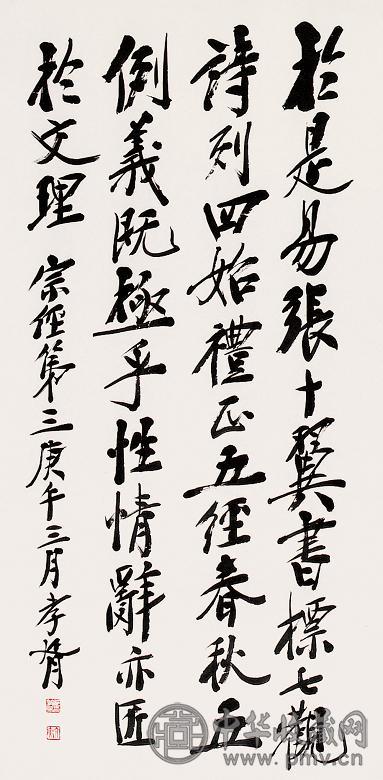 於是易張十翼書標七觀
詩列四始禮正五經春秋五
例義既極乎性情辭亦匠
於文理 宗經第三庚午三月孝胥
中华收藏网
www.pmv.cn